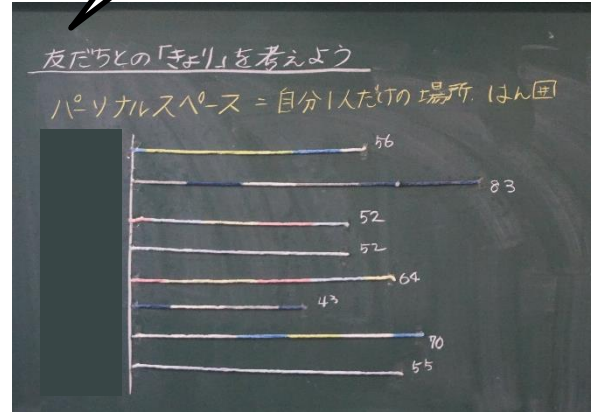 友だちとの「きょり」を考えよう
パーソナルスペース＝自分1人だけの場所.はん囲
56
83
52
52
64
43
70
55